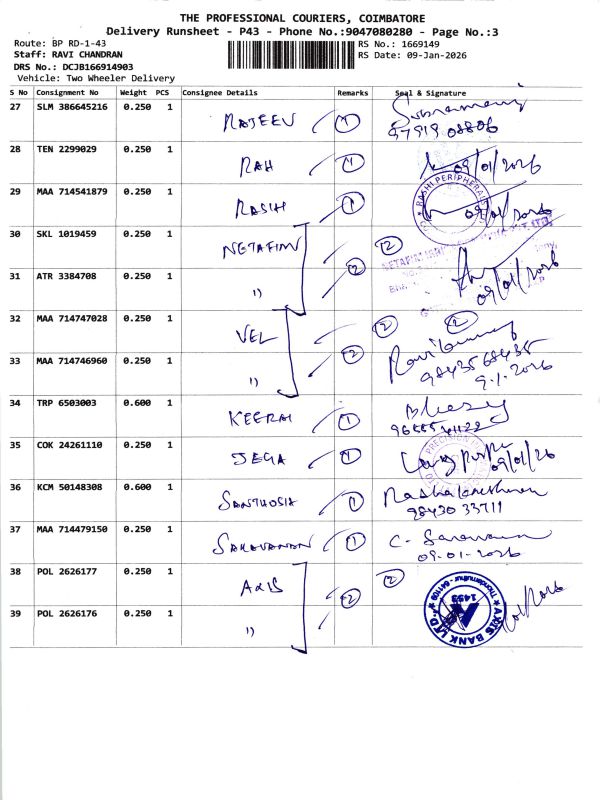 THE PROFESSIONAL COURIERS, COIMBATORE
Delivery Runsheet - P43 - Phone No.:9047080280 - Page No.:3
Route: BP RD-1-43
RS No.: 1669149
Staff: RAVI CHANDRAN
RS Date: 09-Jan-2026
DRS No.: DCJB166914903
Vehicle: Two Wheeler Delivery
S No Consignment No Weight PCS Consignee Details Remarks Seal & Signature
27 SLM 386645216 0.250 1 RAJEEV 1
97919 08806
28 TEN 2299029 0.250 1 RAH 1 09/01/2026
29 MAA 714541879 0.250 1 RASHI 1 RASHI PERIPHERALS 09/01/2026
30 SKL 1019459 0.250 1 NETAFIM 2
31 ATR 3384708 0.250 1 11 2 09/01/2026
32 MAA 714747028 0.250 1 VEL 2 2
33 MAA 714746960 0.250 1 11 2 98435 68435
9.1.2026
34 TRP 6503003 0.600 1 KEERAI 1
35 COK 24261110 0.250 1 JEGA 1 PRECISION 09/01/26
36 KCM 50148308 0.600 1 SANTHOSH 1 Radhakrishnan
98430 33711
37 MAA 714479150 0.250 1 SARAVANAN 1 C. Saravanan
09-01-2026
38 POL 2626177 0.250 1 AXIS 2
39 POL 2626176 0.250 1 11 2 AXIS BANK LTD. Thondamuthur - 641109 1453